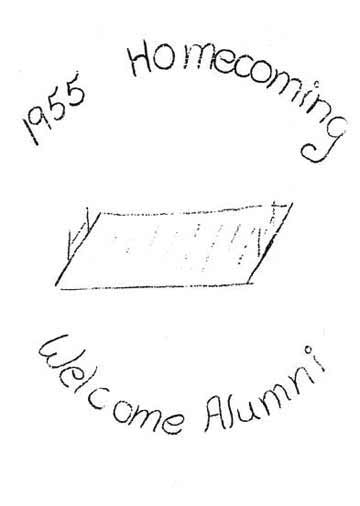 1955 Homecoming
Welcome Alumni